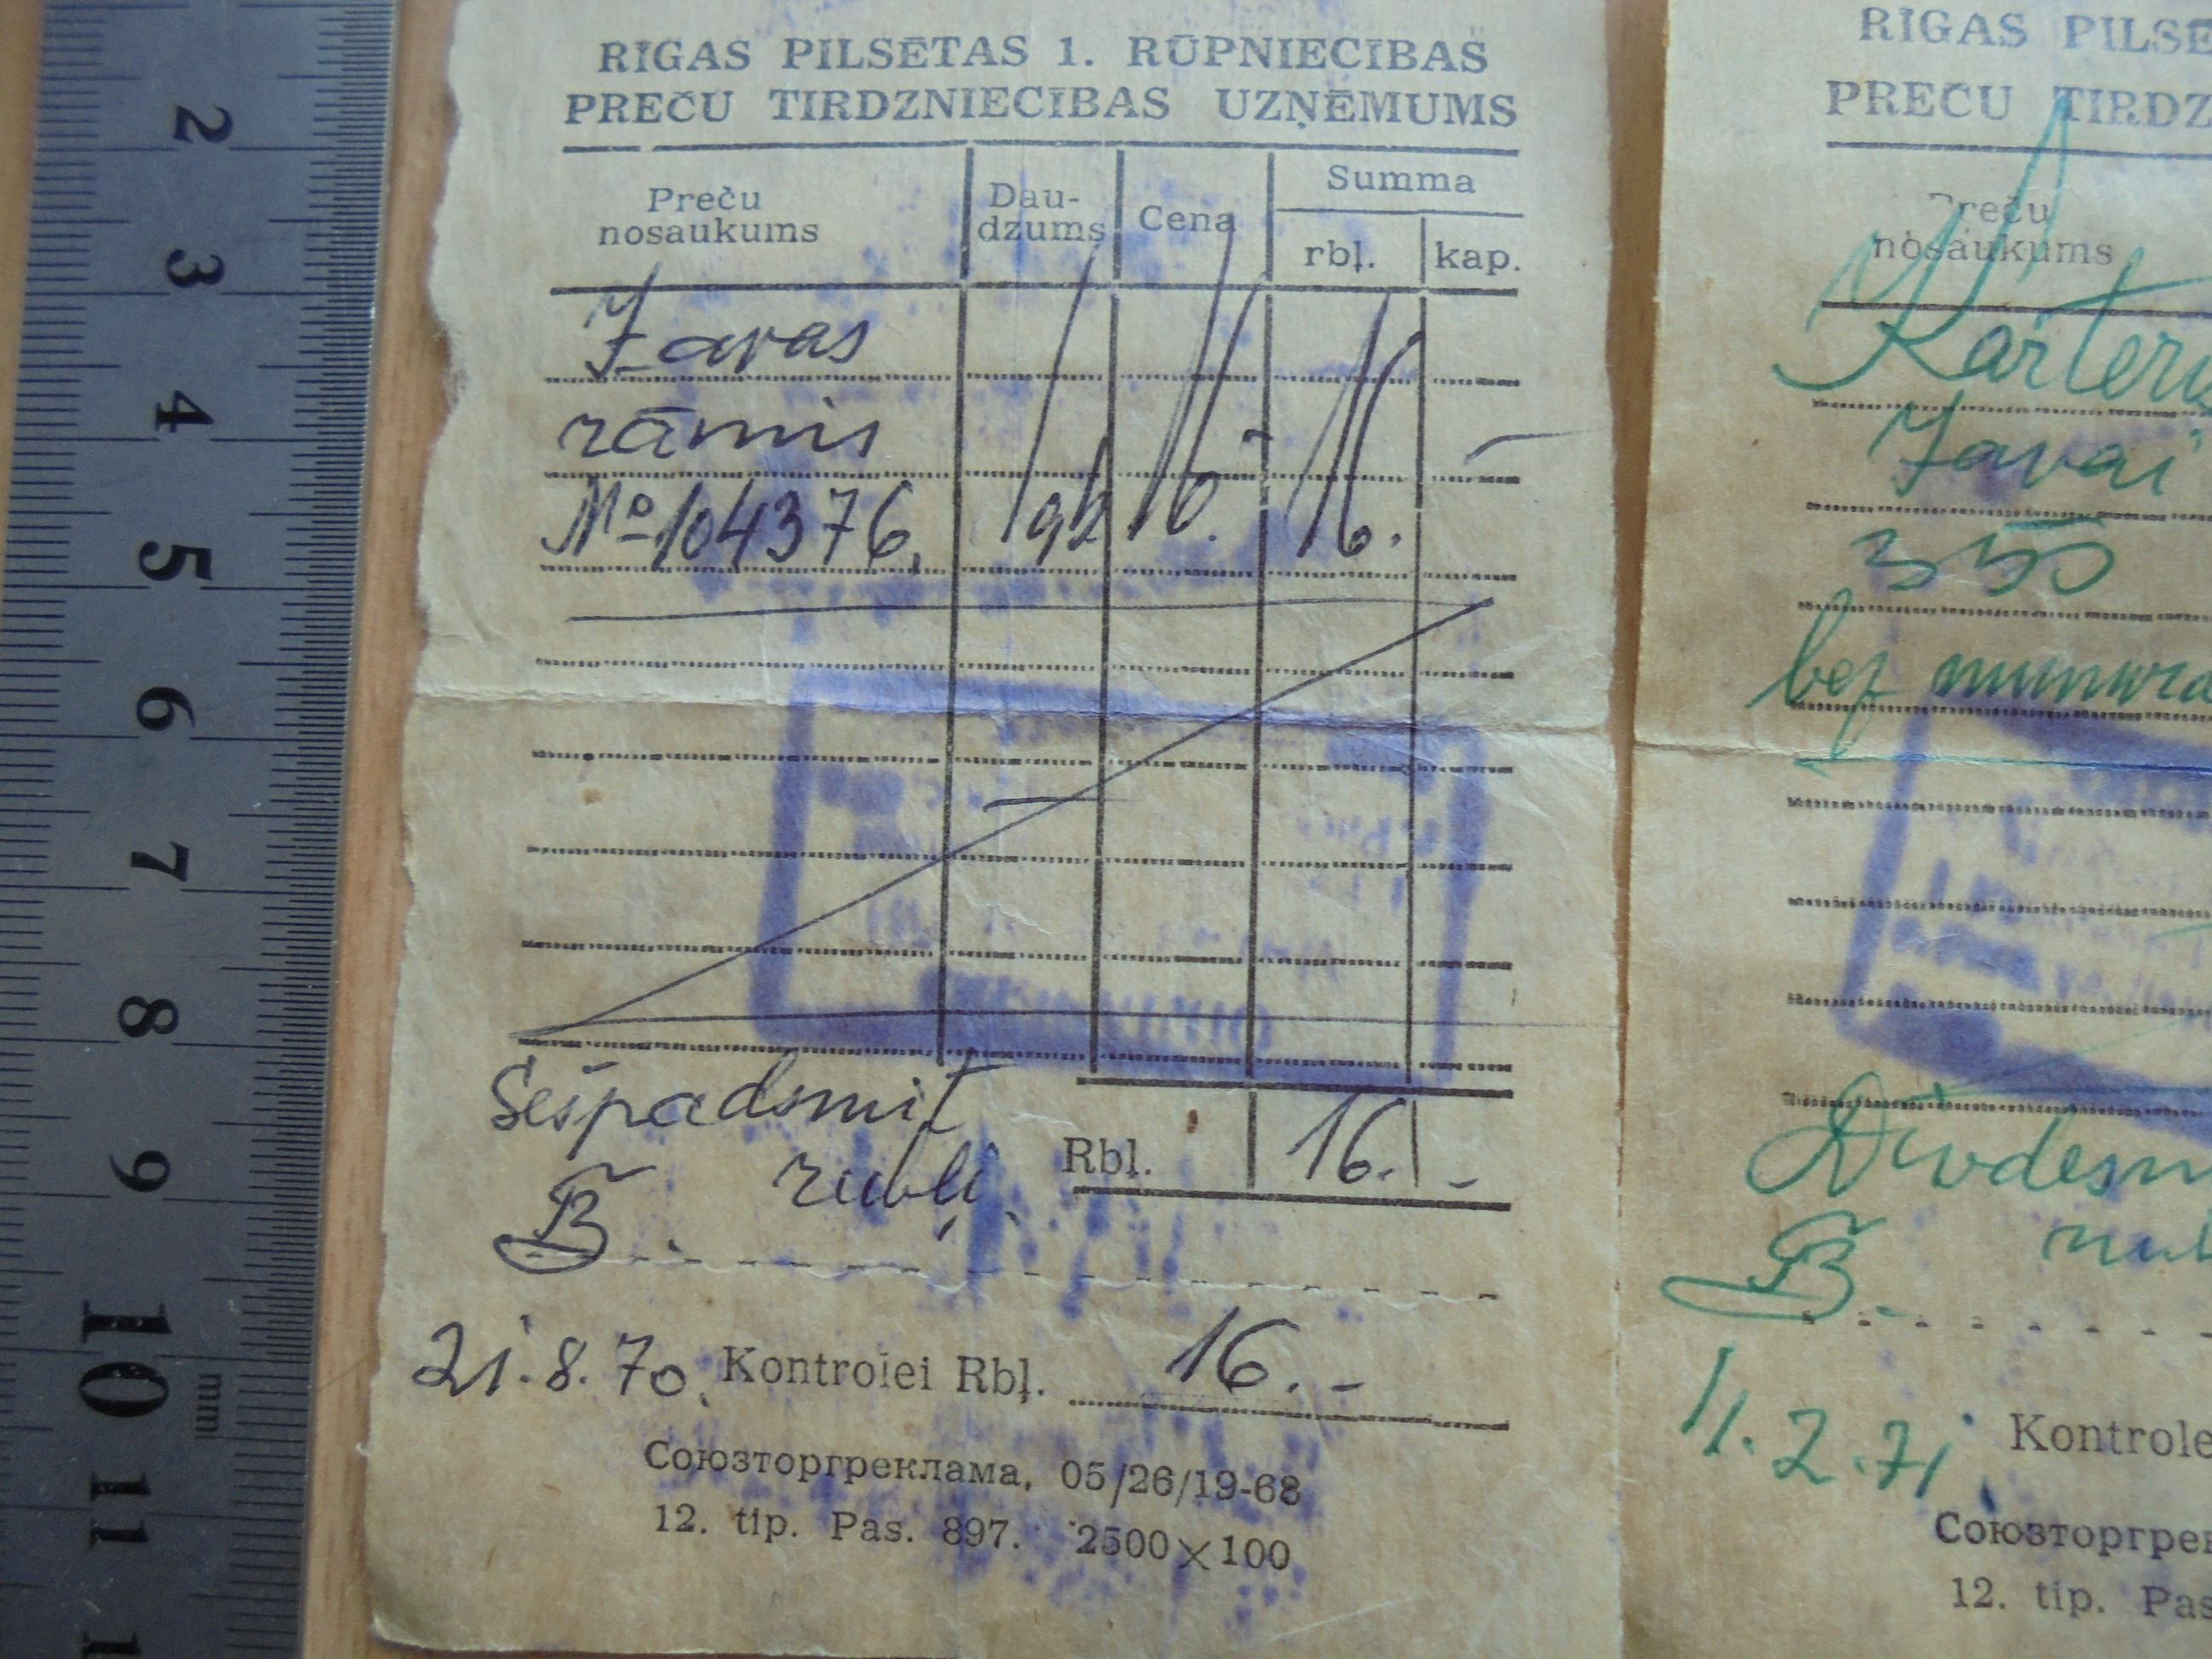 RĪGAS PILSĒTAS 1. RŪPNIECĪBAS
PREČU TIRDZNIECĪBAS UZŅĒMUMS
Preču nosaukums
Dau-
dzums
Cena
Summa
rbļ.
kap.
Javas
rāmis
№ 104376, 1 gb 16.- 16. -
Sešpadsmit
rubļi
Rbļ. 16. -
21.8.70. Kontrolei Rbļ. 16.-
Союзторгреклама, 05/26/19-68
12. tip. Pas. 897. 2500×100
RĪGAS PILSĒ
PREČU TIRDZ
Preču
nosaukums
Karteru
Javai
350
bez numura
Divdesm
rub
11.2.71. Kontrole
Союзторгрек
12. tip. Pas
2
3
4
5
6
7
8
9
10
mm
11